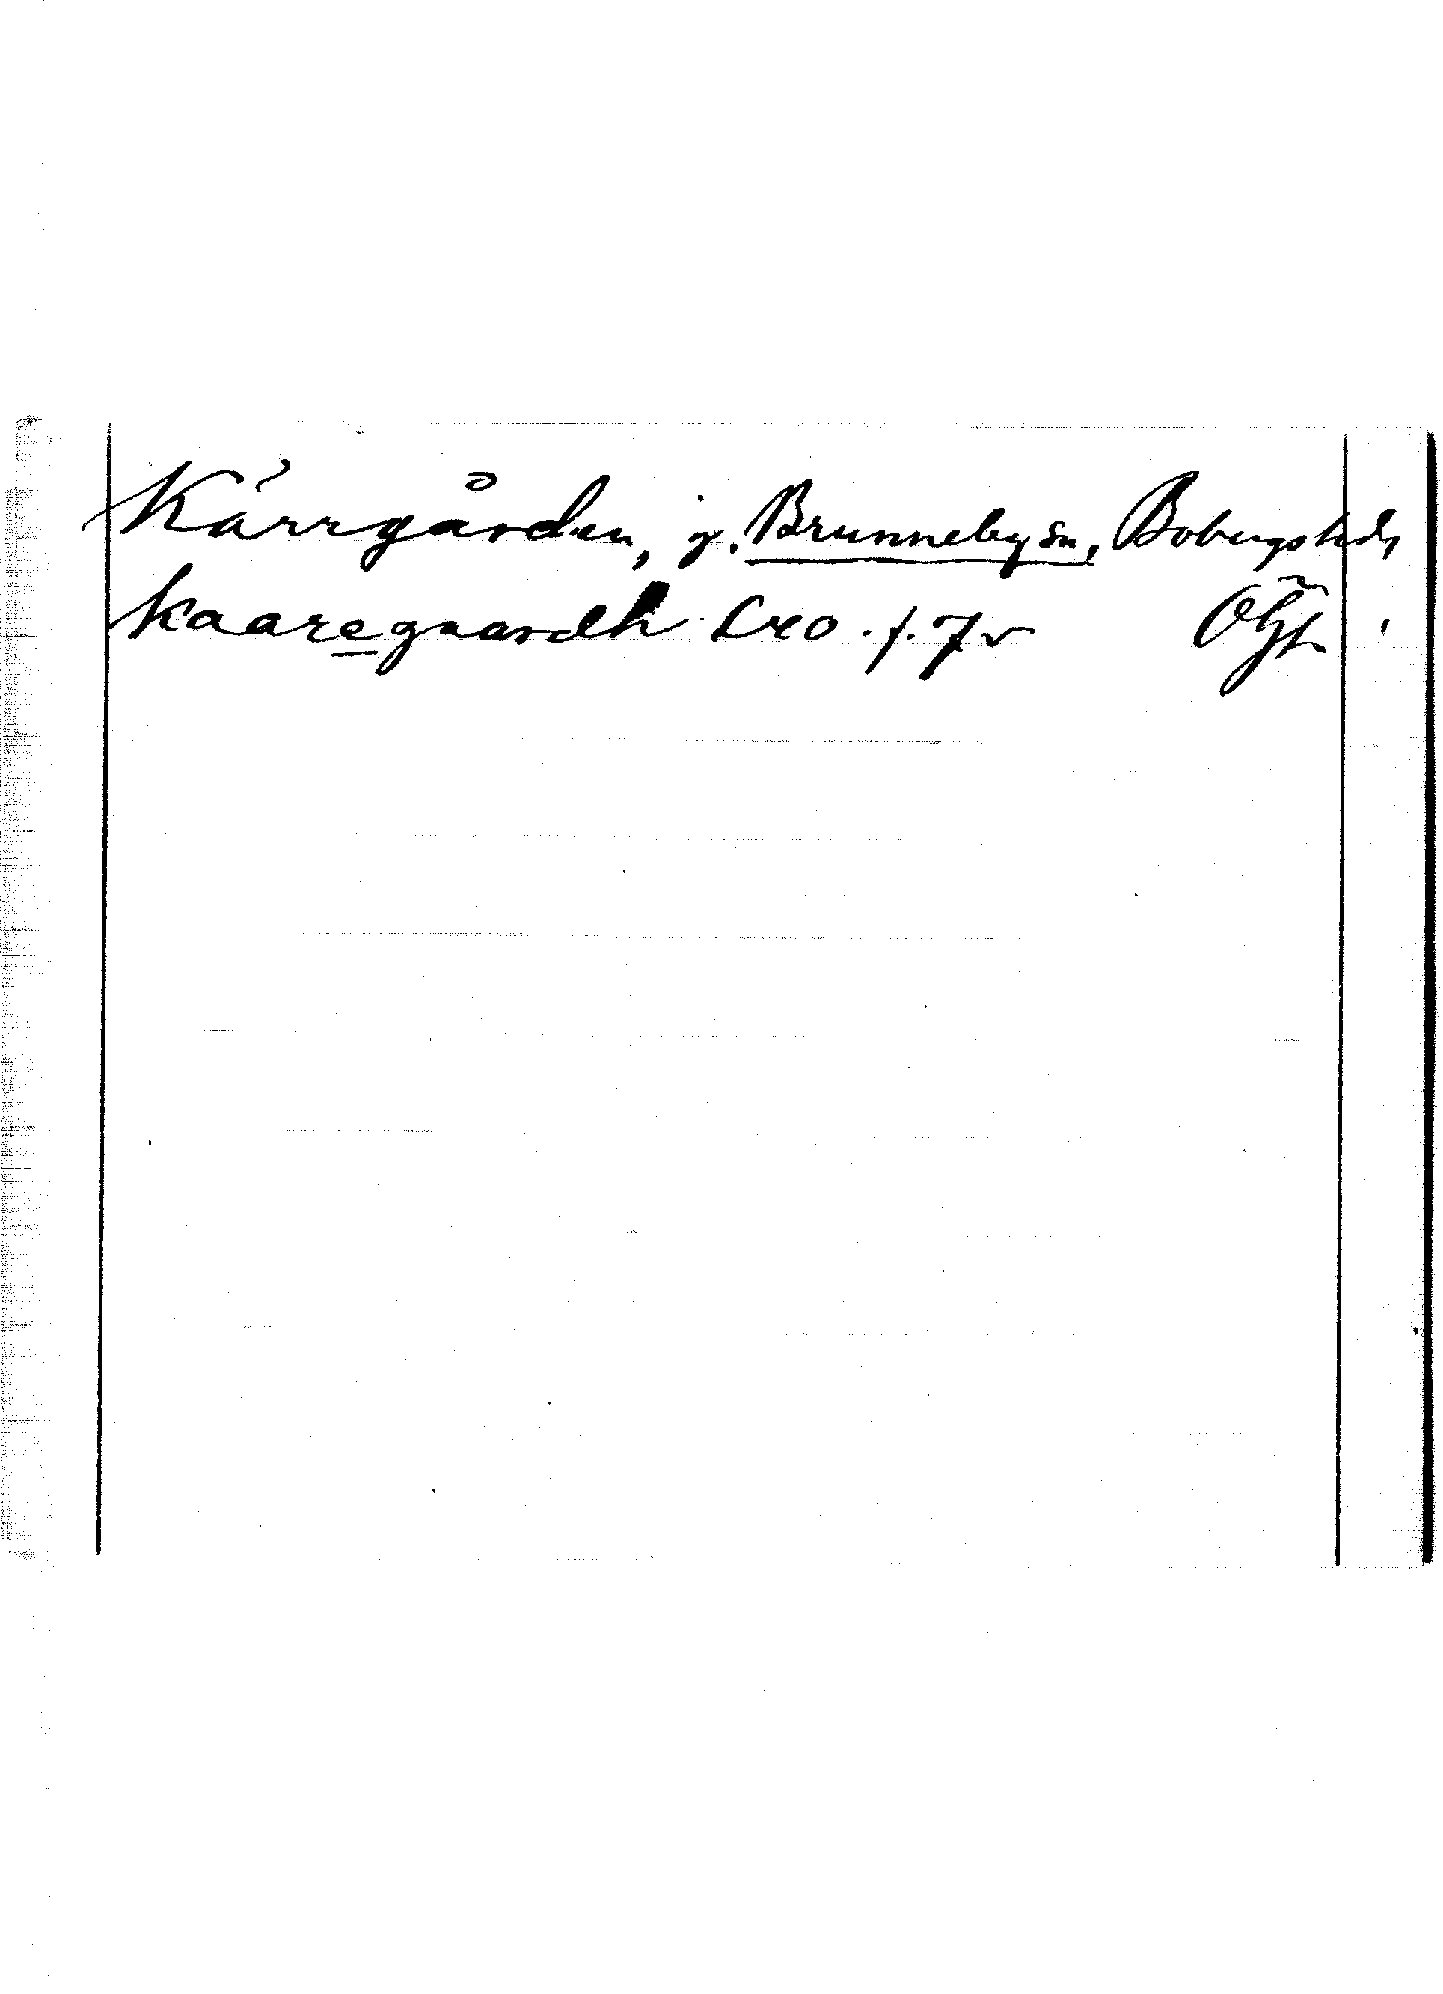 Kärrgården, g. Brunneby sn, Bobergs hd,
kaaregaardh C40. f. 7v Ögl.